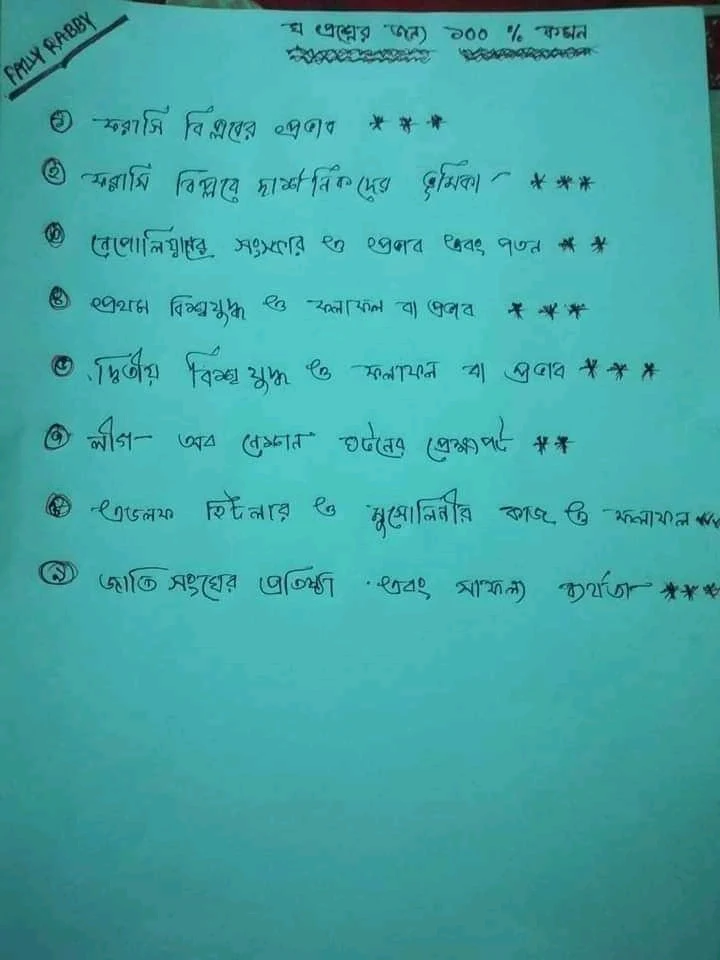 FAZLY RABBY
ঘ প্রশ্নের জন্য ১০০ % কমন
১ ফরাসি বিপ্লবের প্রভাব * * *
২ ফরাসি বিপ্লবে দার্শনিকদের ভূমিকা - * * *
৩ নেপোলিয়ানের সংস্কার ও প্রভাব এবং পতন * *
৪ প্রথম বিশ্বযুদ্ধ ও ফলাফল বা প্রভাব * * *
৫ দ্বিতীয় বিশ্ব যুদ্ধ ও ফলাফল বা প্রভাব * * *
৭ লীগ- অব নেশনস গঠনের প্রেক্ষাপট * *
৮ এডলফ হিটলার ও মুসোলিনীর কাজ ও ফলাফল **
৯ জাতিসংঘের প্রতিষ্ঠা এবং সাফল্য ব্যর্থতা * * *